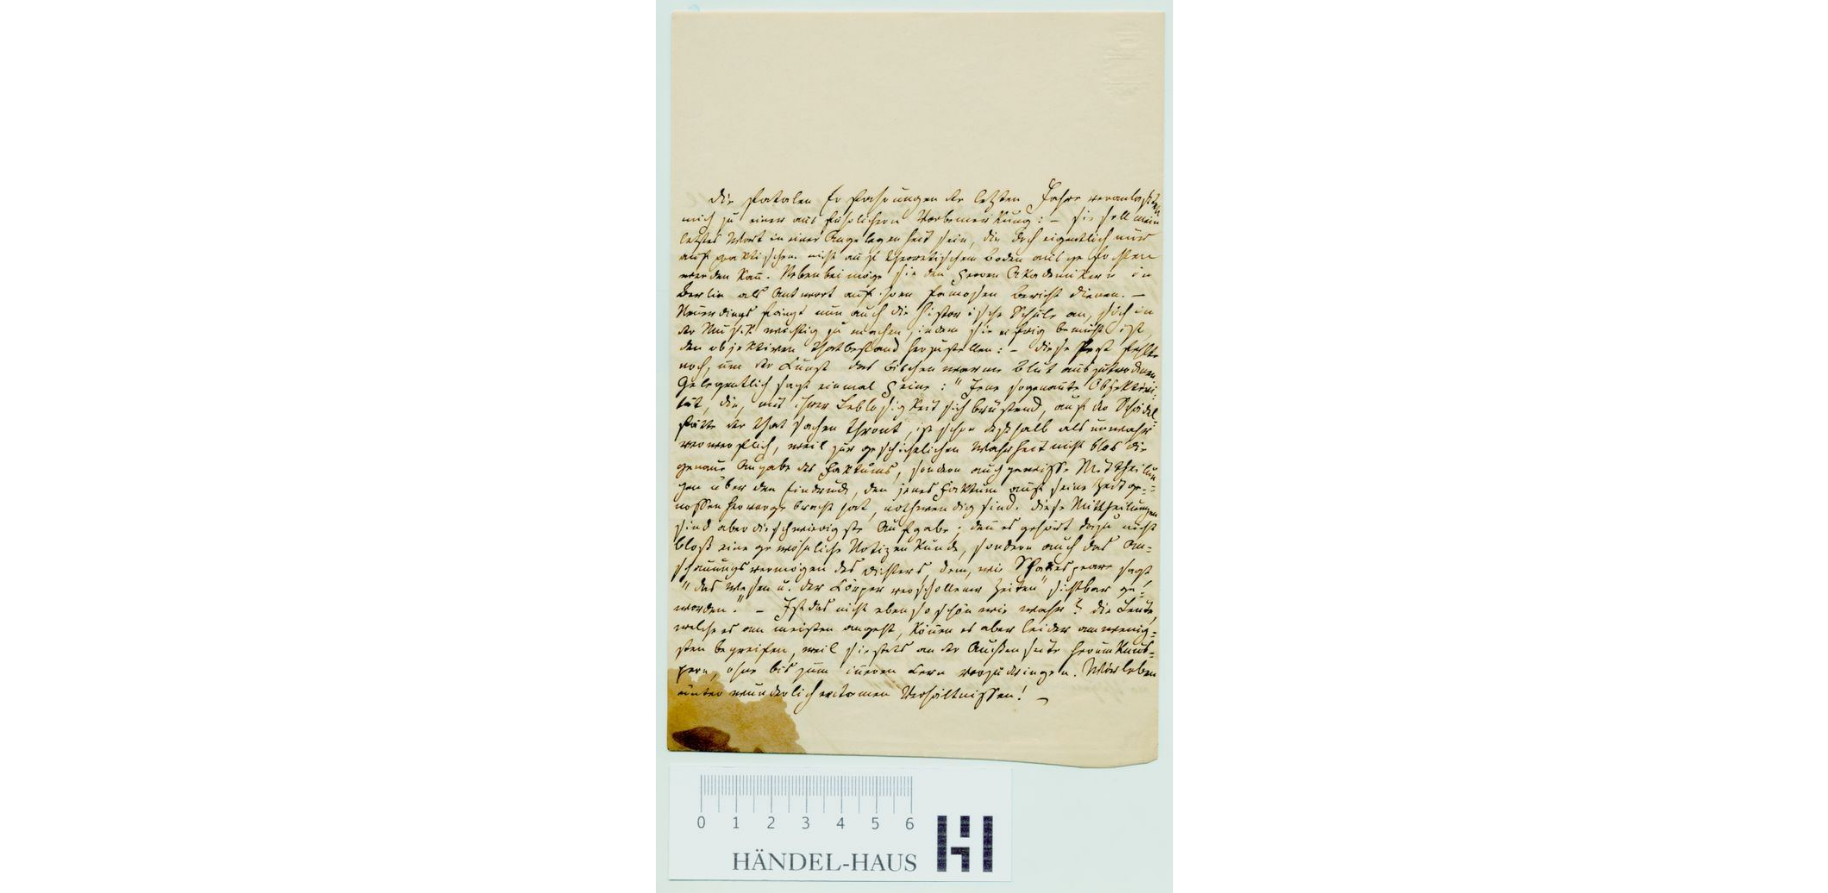 Die fatalen Erfahrungen der letzten Jahre veranlaßten
mich zu einer ausführlichern Vorbemerkung: – sie soll mein
letztes Wort in einer Angelegenheit sein, die doch eigentlich nur
auf praktischen nicht auf theoretischem Boden ausgefochten
werden kan̄. Nebenbei möge sie den Herren Akademikern in
Berlin als Antwort auf ihren famosen Bericht dienen. –
Neuerdings fängt nun auch die historische Schule an, sich in
der Musik wichtig zu machen, indem sie eifrig bemüht ist,
den objektiven Thatbestand herzustellen: – diese Pest fehlte
noch, um der Kunst das bischen warme Blut
Gelegentlich sagt einmal Heine: "Jene sogenan̄te Objektivi-
tät, die, mit ihrer Leblosigkeit sich brüstend, auf der Schädel-
stätte der Thatsachen thront, ist schon deshalb als unwahr
verwerflich, weil zur geschichtlichen Wahrheit nicht blos die
genaue Angabe des Faktums, sondern auch gewisse Mittheilun-
gen über den Eindruck, den jenes Faktum auf seine Zeitge-
nossen hervorgebracht hat, nothwendig sind. Diese Mittheilungen
sind aber die schwierigste Aufgabe; den̄ es gehört dazu nicht
bloß eine gewöhnliche Notizenkunde, sondern auch das An-
schauungsvermögen des Dichters dem, wie Shakespeare sagt
"das Wesen u. der Körper verschollener Zeiten" sichtbar ge-
worden." – Ist das nicht ebenso schön wie wahr? Die Leute,
welche es am meisten angeht, kön̄en es aber leider am wenig-
sten begreifen, weil sie stets an der Außenseite herumknus-
pern, ohne bis zum in̄eren Kern vorzudringen. Wir leben
unter wunderlich Verhältnissen! –
0 1 2 3 4 5 6
HÄNDEL-HAUS